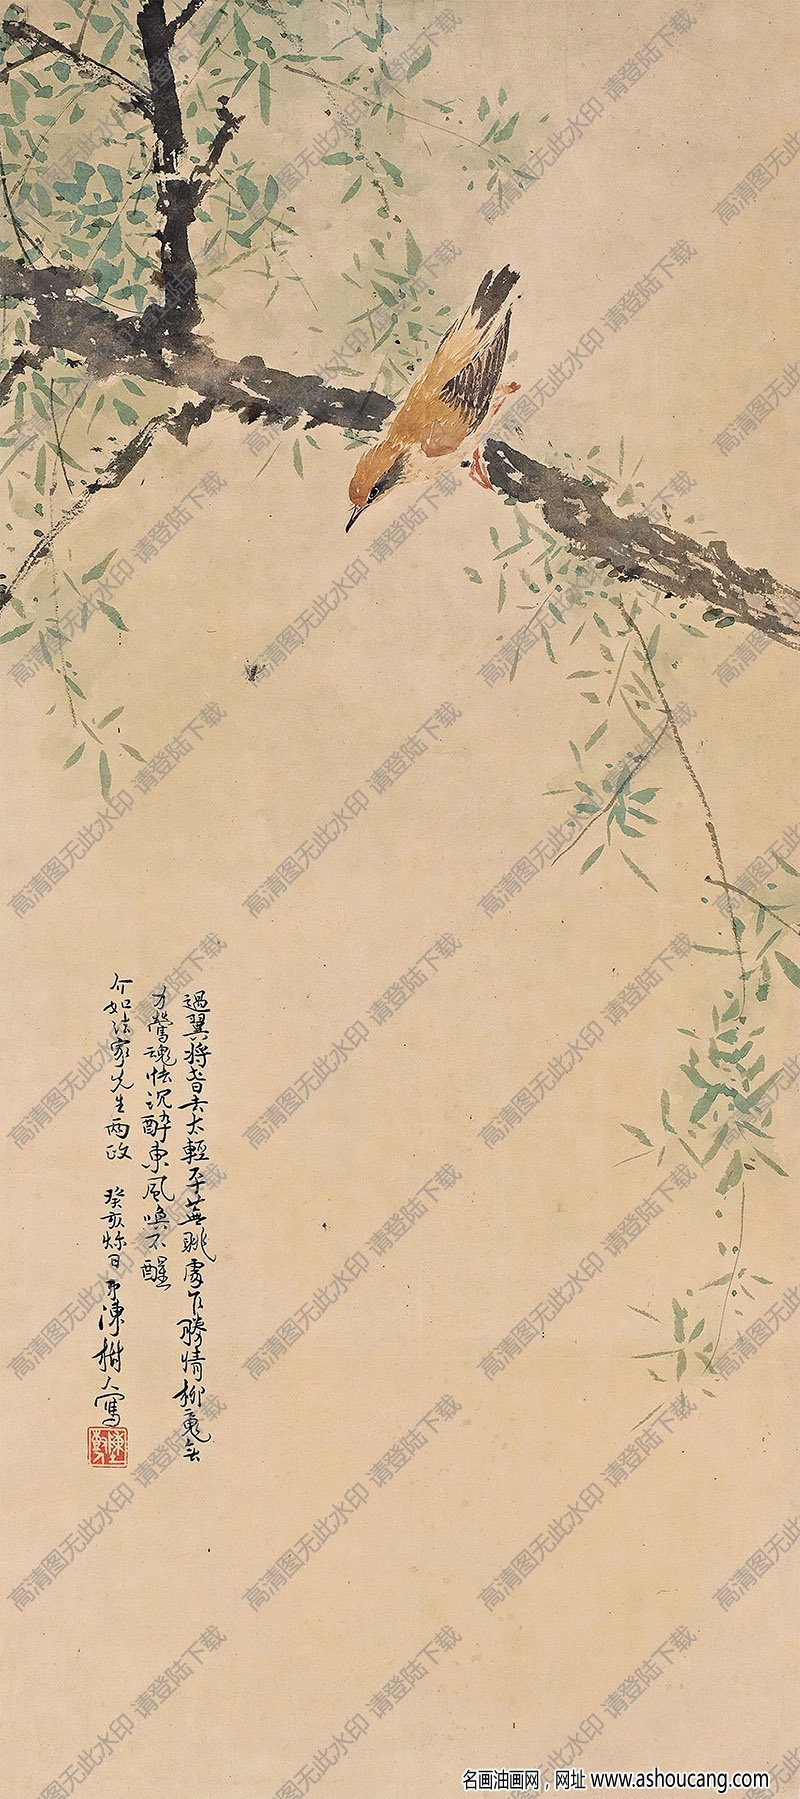 過翼將昏去太輕平蕪眺處
勝情柳
力鶯魂怯沉醉東風喚不醒
介如法家先生兩政 癸亥 日 陳樹人寫
高清图无此水印 请登陆下载
名画油画网，网址 www.ashoucang.com